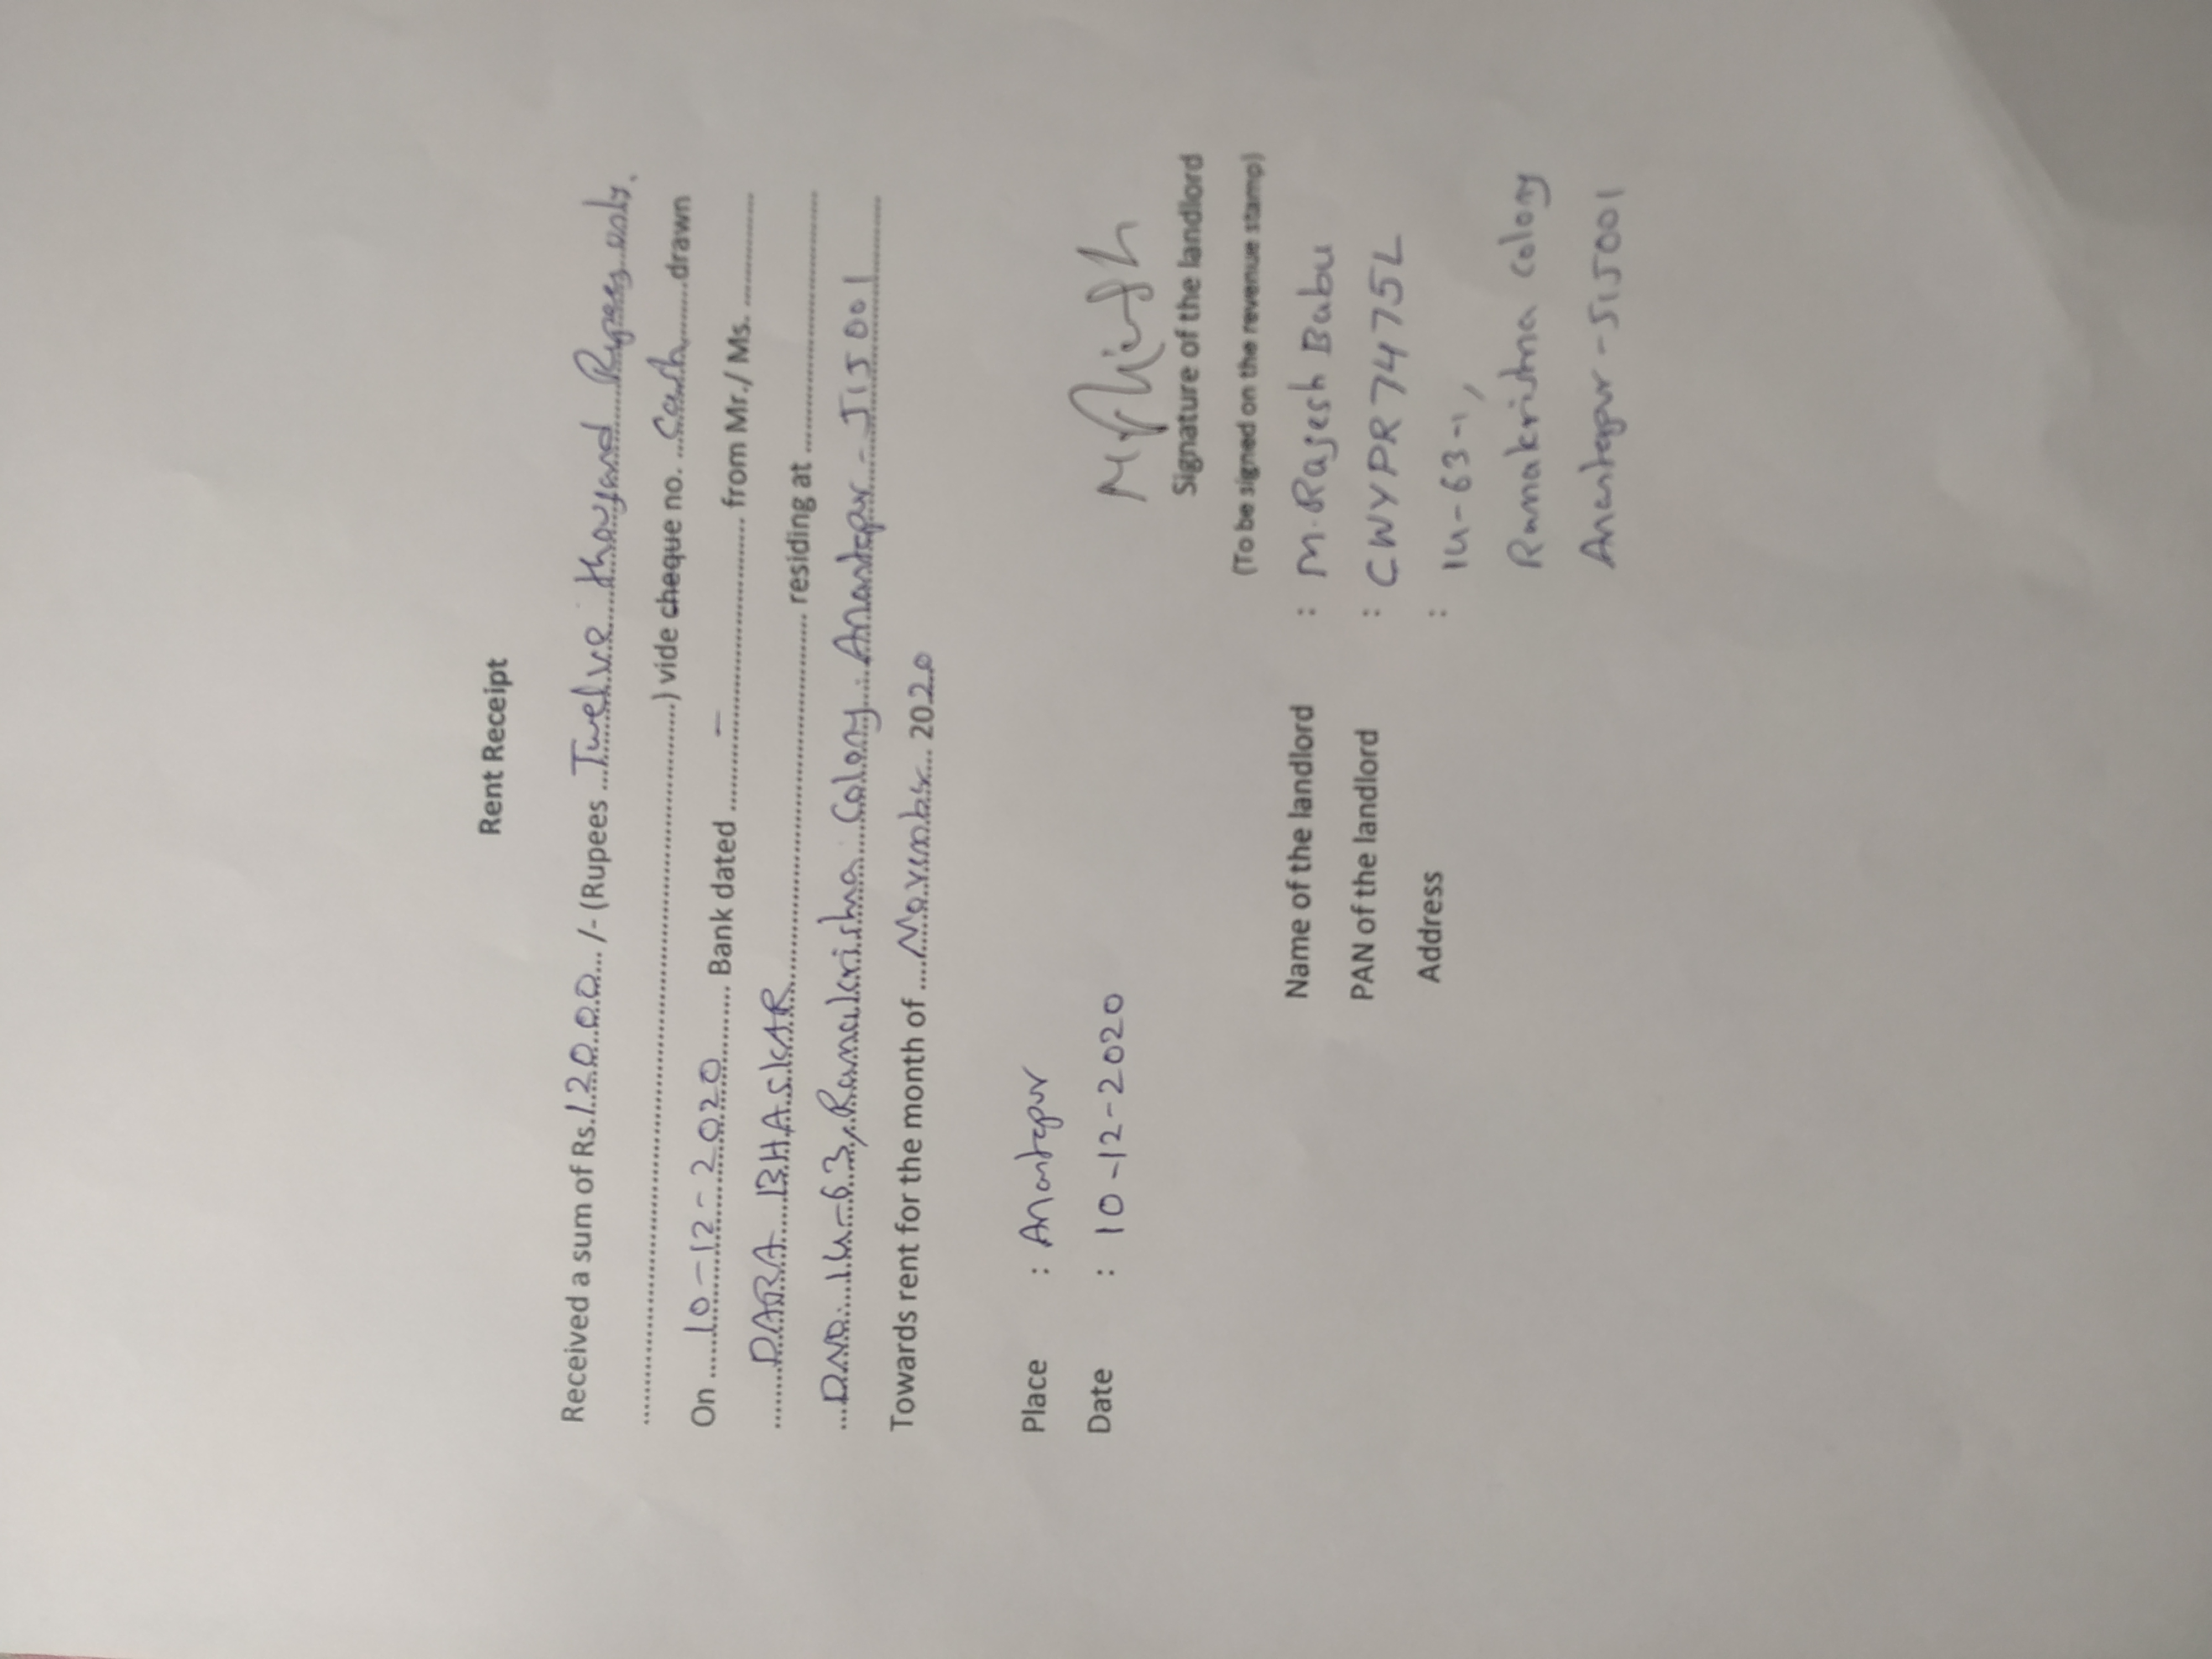 Rent Receipt
Received a sum of Rs.12000 /- (Rupees Twelve thousand Rupees only.
) vide cheque no. Cash drawn
On 10-12-2020 Bank dated – from Mr./ Ms.
DARA BHASKAR residing at
DNO: 14-63, Ramakrishna Colony. Anantapur - 515001
Towards rent for the month of November 2020
Place : Anantapur
Date : 10-12-2020
Signature of the landlord
(To be signed on the revenue stamp)
Name of the landlord : M. Rajesh Babu
PAN of the landlord : CWYPR7475L
Address : 14-63-1,
Ramakrishna colony
Anantapur - 515001